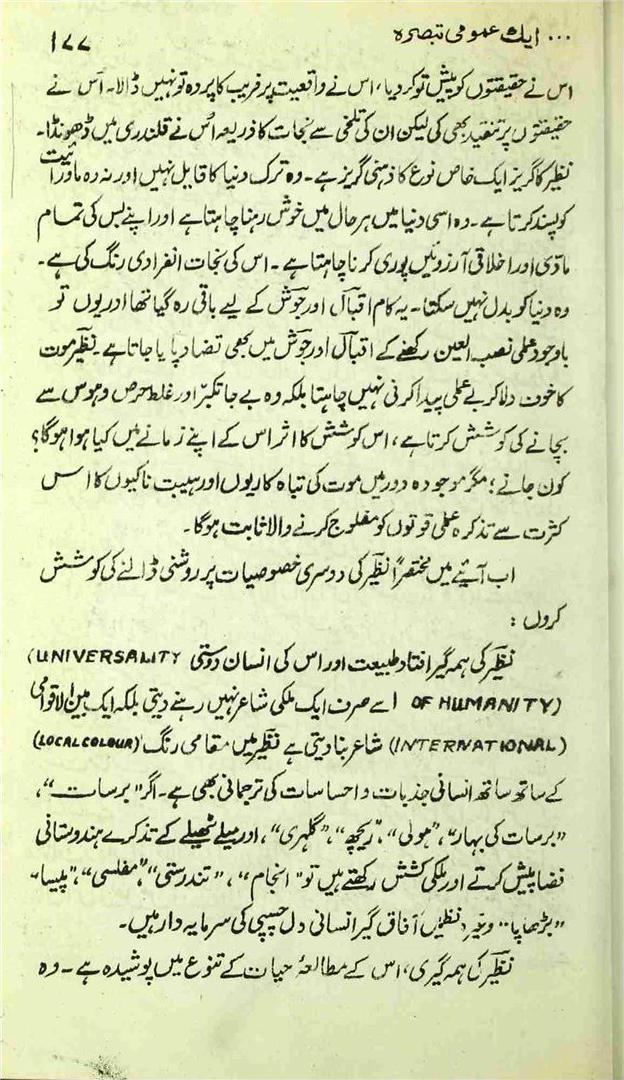 ... ایک عمومی تبصرہ ۱۷۷
اس نے حقیقتوں کو پیش تو کر دیا، اس نے واقعیت پر فریب کا پردہ تو نہیں ڈالا۔ اس نے
حقیقتوں پر تنقید بھی کی لیکن ان کی تلخی سے نجات کا ذریعہ اُس نے قلندری میں ڈھونڈا۔
نظیر کا گریز ایک خاص نوع کا ذہنی گریز ہے۔ وہ ترک دنیا کا قایل نہیں اور نہ وہ ماورائیت
کو پسند کرتا ہے۔ وہ اسی دنیا میں ہر حال میں خوش رہنا چاہتا ہے اور اپنے بس کی تمام
مادّی اور اخلاقی آرزوئیں پوری کرنا چاہتا ہے۔ اس کی نجات انفرادی رنگ کی ہے۔
وہ دنیا کو بدل نہیں سکتا۔ یہ کام اقبالؔ اور جوشؔ کے لیے باقی رہ گیا تھا اور یوں تو
باوجود عملی نصب العین رکھنے کے اقبالؔ اور جوشؔ میں بھی تضاد پایا جاتا ہے۔ نظیرؔ موت
کا خوف دلا کر بے عملی پیدا کرنی نہیں چاہتا بلکہ وہ بے جا تکبر اور غلط حرص و ہوس سے
بچانے کی کوشش کرتا ہے، اس کوشش کا اثر اس کے اپنے زمانے میں کیا ہوا ہوگا؟
کون جانے؛ مگر موجودہ دور میں موت کی تباہ کاریوں اور ہیبت ناکیوں کا اس
کثرت سے تذکرہ عملی قوتوں کو مفلوج کرنے والا ثابت ہوگا۔
اب آئیے میں مختصراً نظیرؔ کی دوسری خصوصیات پر روشنی ڈالنے کی کوشش
کروں :
نظیرؔ کی ہمہ گیر افتاد طبیعت اور اس کی انسان دوستی (UNIVERSALITY
OF HUMANITY) اسے صرف ایک ملکی شاعر نہیں رہنے دیتی بلکہ ایک بین الاقوامی
(INTERNATIONAL) شاعر بنا دیتی ہے نظیرؔ میں مقامی رنگ (LOCAL COLOUR)
کے ساتھ ساتھ انسانی جذبات و احساسات کی ترجمانی بھی ہے۔ اگر "برسات"،
"برسات کی بہار"، "ہولی"، "ریچھ"، "گلہری"، اور میلے ٹھیلے کے تذکرے ہندوستانی
فضا پیش کرتے اور ملکی کشش رکھتے ہیں تو "انجام"، "تندرستی"، "مفلسی"، "پیسا"
"بڑھاپا" وغیرہ نظمیں آفاق گیر انسانی دل چسپی کی سرمایہ دار ہیں۔
نظیرؔ کی ہمہ گیری، اس کے مطالعۂ حیات کے تنوع میں پوشیدہ ہے۔ وہ